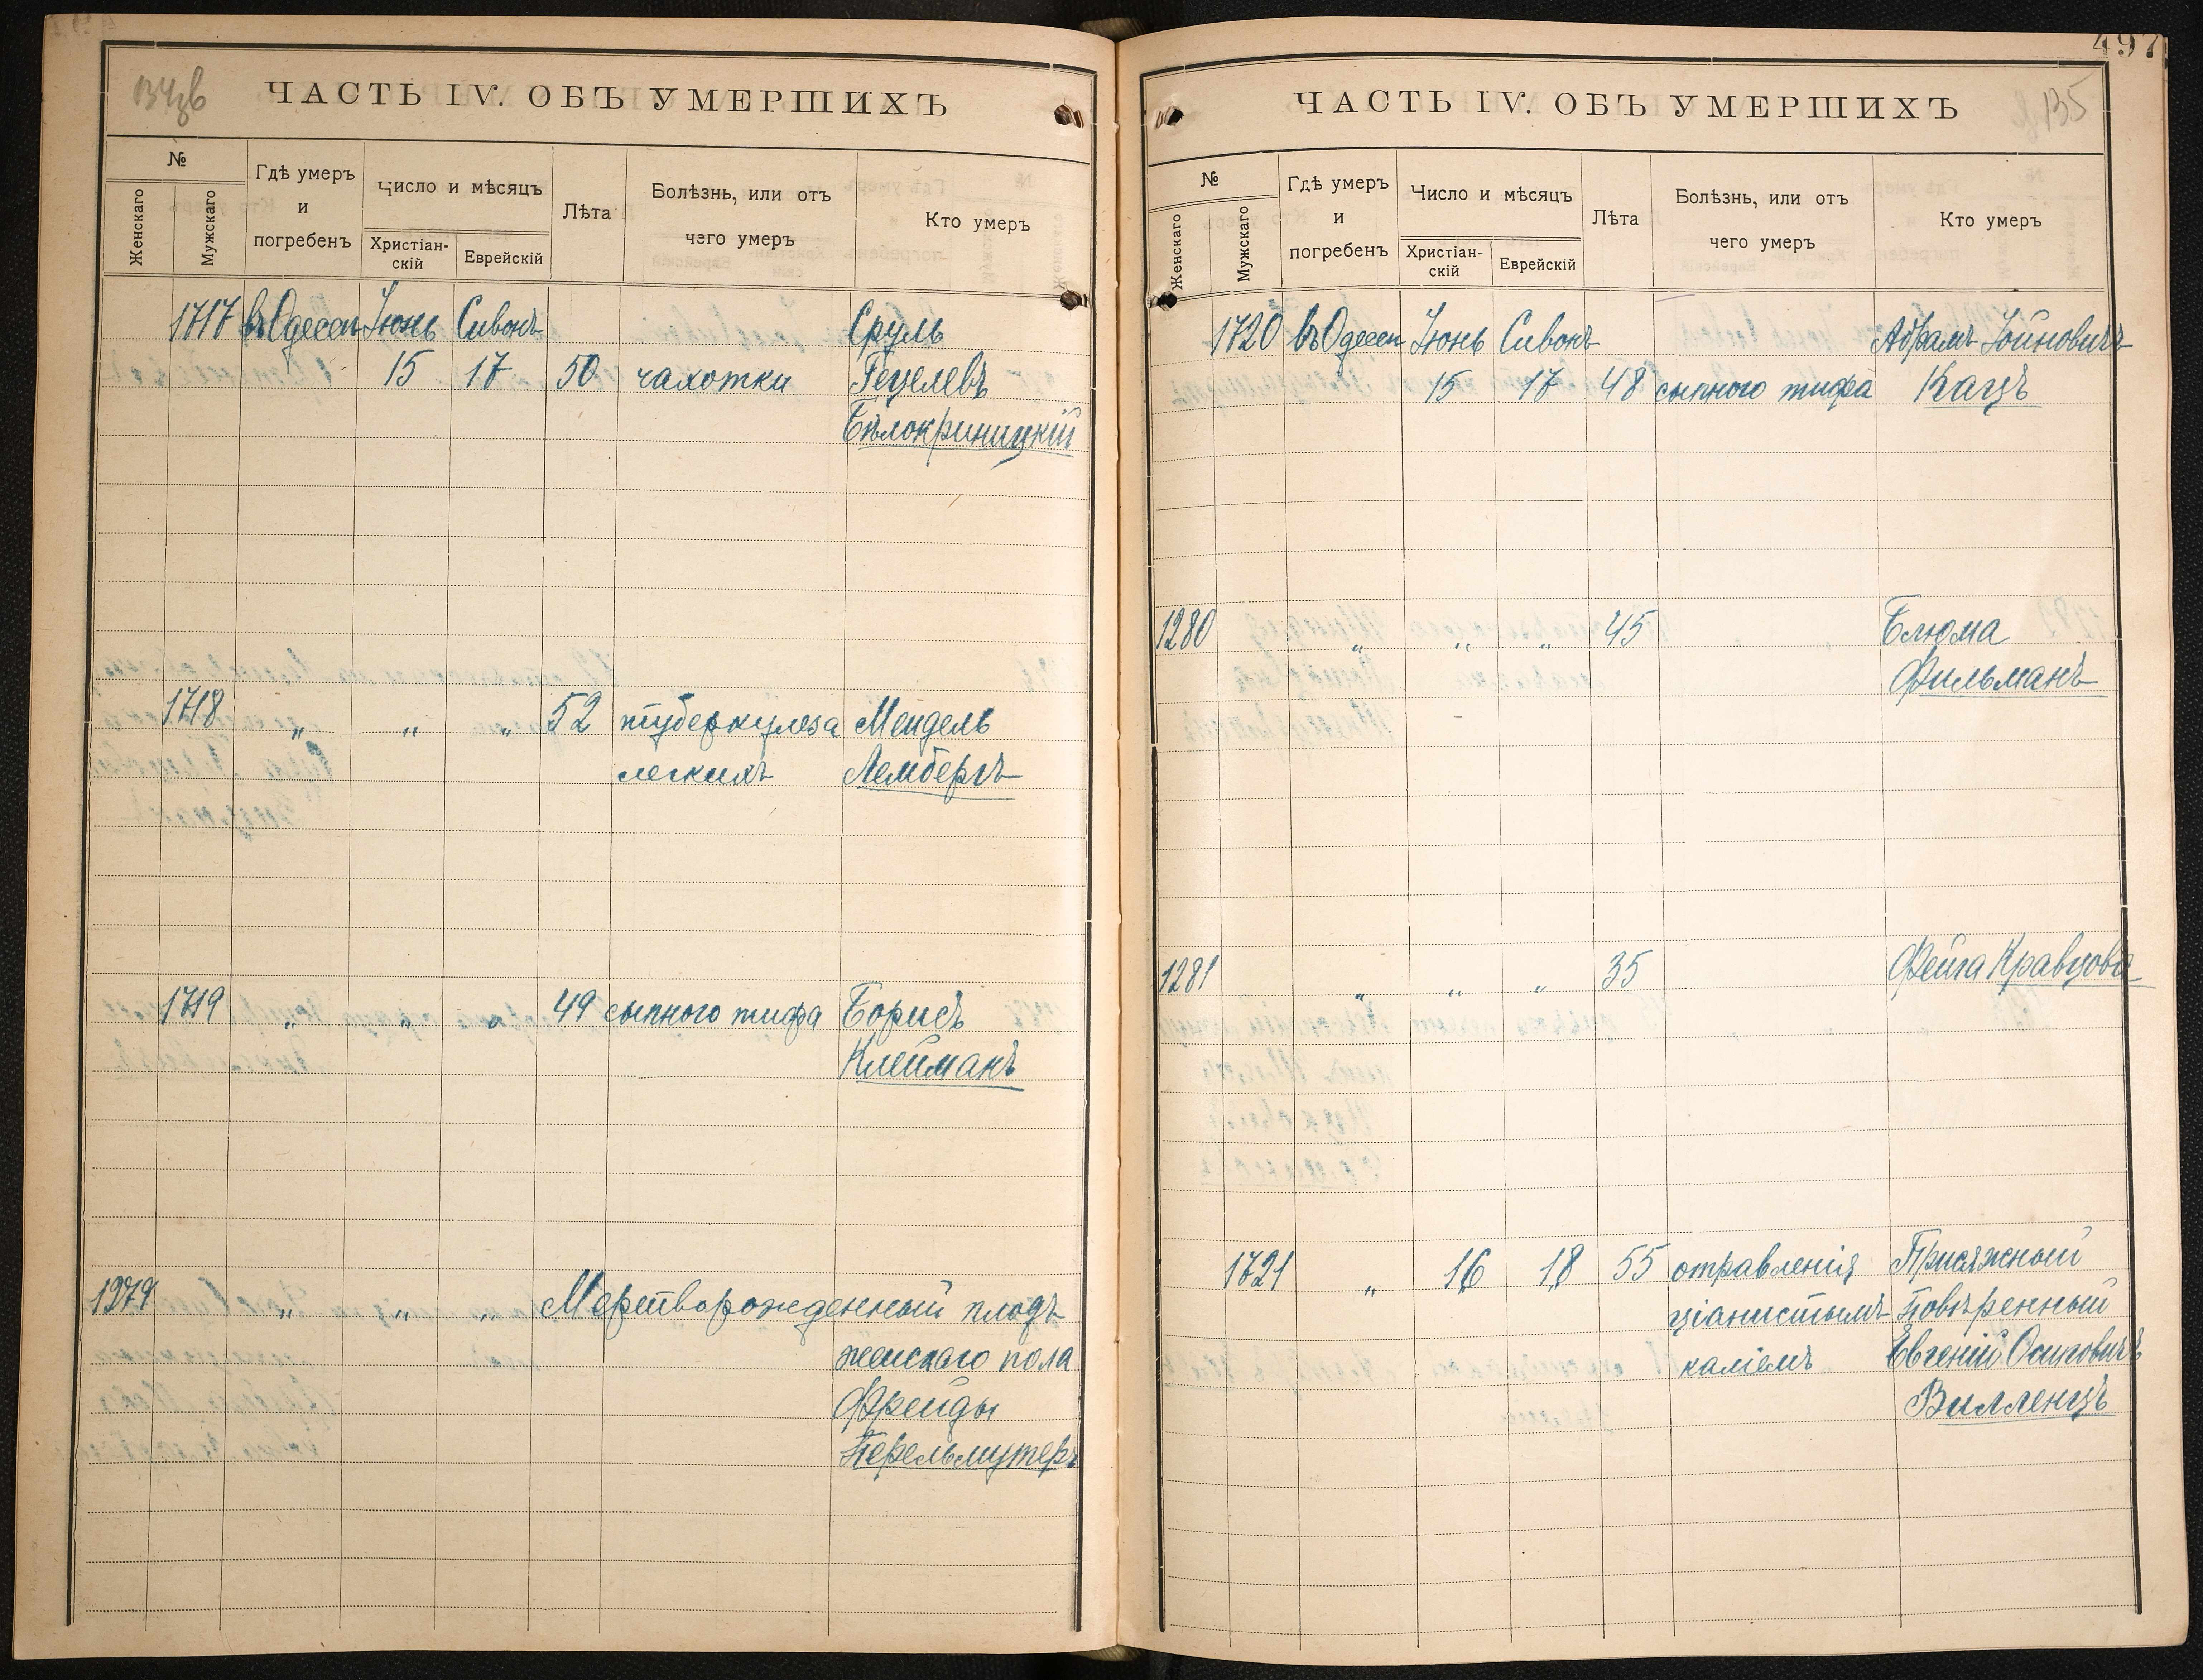 134об
ЧАСТЬ IV. ОБЪ УМЕРШИХЪ
№
Женскаго
Мужскаго
Гдѣ умеръ
и
погребенъ
Число и мѣсяцъ
Христіан-
скій
Еврейскій
Лѣта
Болѣзнь, или отъ
чего умеръ
Кто умеръ
1717 въ Одессѣ Іюнь Сивонъ Сруль
15 17 50 чахотки Гецелевъ
Бѣлокриницкій
1718 „ „ „ 52 туберкулеза Мендель
легкихъ Лембергъ
1719 „ „ „ 49 сыпного тифа Борисъ
Клейманъ
1279 „ „ „ Мертворожденный плодъ
женскаго пола
Фрейды
Перельмутеръ
497
135
ЧАСТЬ IV. ОБЪ УМЕРШИХЪ
№
Женскаго
Мужскаго
Гдѣ умеръ
и
погребенъ
Число и мѣсяцъ
Христіан-
скій
Еврейскій
Лѣта
Болѣзнь, или отъ
чего умеръ
Кто умеръ
1720 въ Одессѣ Іюнь Сивонъ Абрамъ Іойновичъ
15 17 48 сыпного тифа Кацъ
1280 „ „ „ 45 Блюма
Фильманъ
1281 „ „ „ 35 Фейга Кравцова
1721 „ 16 18 55 отравленія Присяжный
ціанистымъ Повѣренный
каліемъ Евгеній Осиповичъ
Вилленцъ